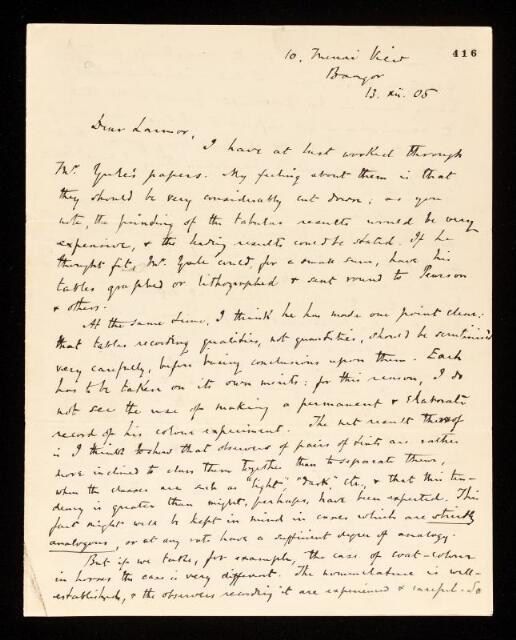 416
10. Menai View
Bangor
13. xii. 05
Dear Larmor,
I have at last worked through
Mr. Yule's papers. My feeling about them is that
they should be very considerably cut down; as you
note, the printing of the tabular results would be very
expensive, & the leading results could be stated. If he
thought fit, Mr. Yule could, for a small sum, have his
tables graphed or lithographed & sent round to Pearson
& others.
At the same time, I think he has made one point clear;
that tables recording qualities, not quantities, should be scrutinised
very carefully, before basing conclusions upon them. Each
has to be taken on its own merits: for this reason, I do
not see the use of making a permanent & elaborate
record of his colour experiment. The net result thereof
is I think to show that observers of pairs of tints are rather
more inclined to class them together than to separate them,
when the classes are such as "light", "dark" etc., & that this ten-
dency is greater than might, perhaps, have been expected. This
fact might well be kept in mind in cases which are strictly
analogous, or at any rate have a sufficient degree of analogy.
But if we take, for example, the case of coat-colour
in horses the case is very different. The nomenclature is well-
established, & the observers recording it are experienced & careful. So